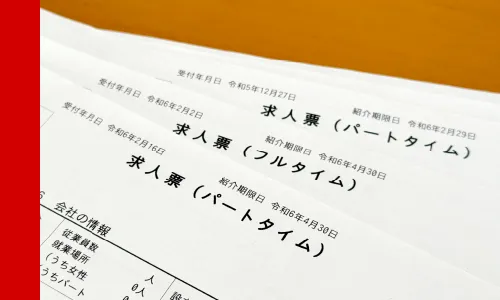 受付年月日 令和5年12月27日
紹介期限日 令和6年2月29日
求人票（パートタイム）
受付年月日 令和6年2月2日
紹介期限日 令和6年4月30日
求人票（フルタイム）
受付年月日 令和6年2月16日
紹介期限日 令和6年4月30日
求人票（パートタイム）
6 会社の情報
従業員数
就業場所 人
（うち女性 0人
うちパート